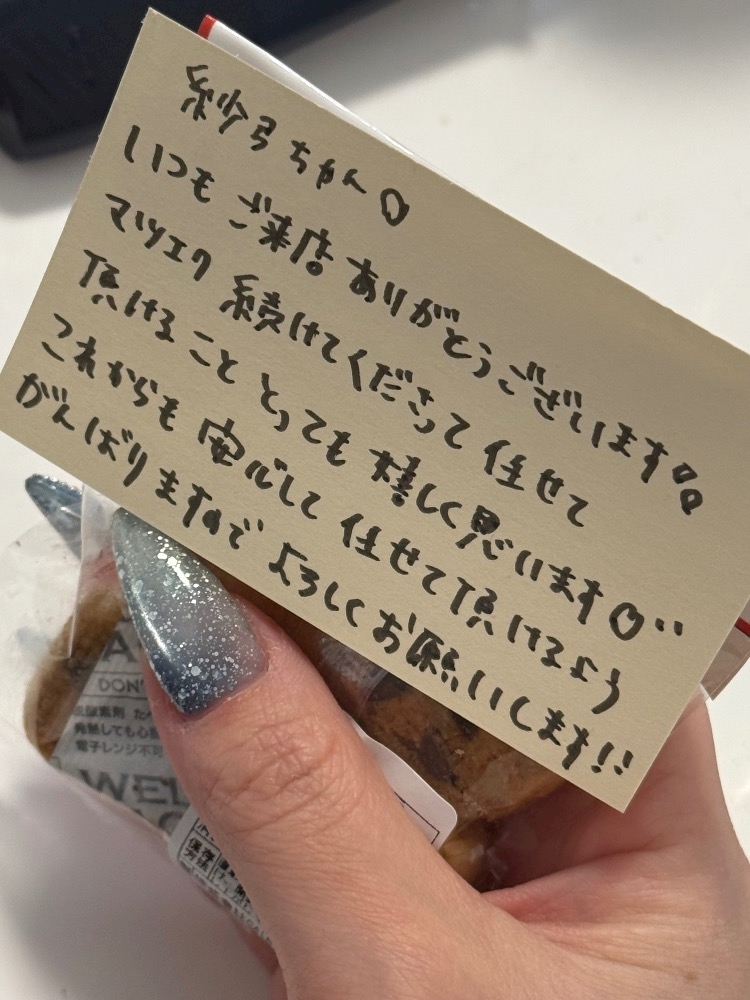 紗弓ちゃん♡
いつも ご来店 ありがとうございます♡
マツエク 続けてくださって 任せて
頂けること とっても 嬉しく思います♡¨
これからも 安心して 任せて頂けるよう
がんばりますので よろしくお願いします!!
DON
脱酸素剤 たべ
発熱しても心配
電子レンジ不可
WEL
保存
方法